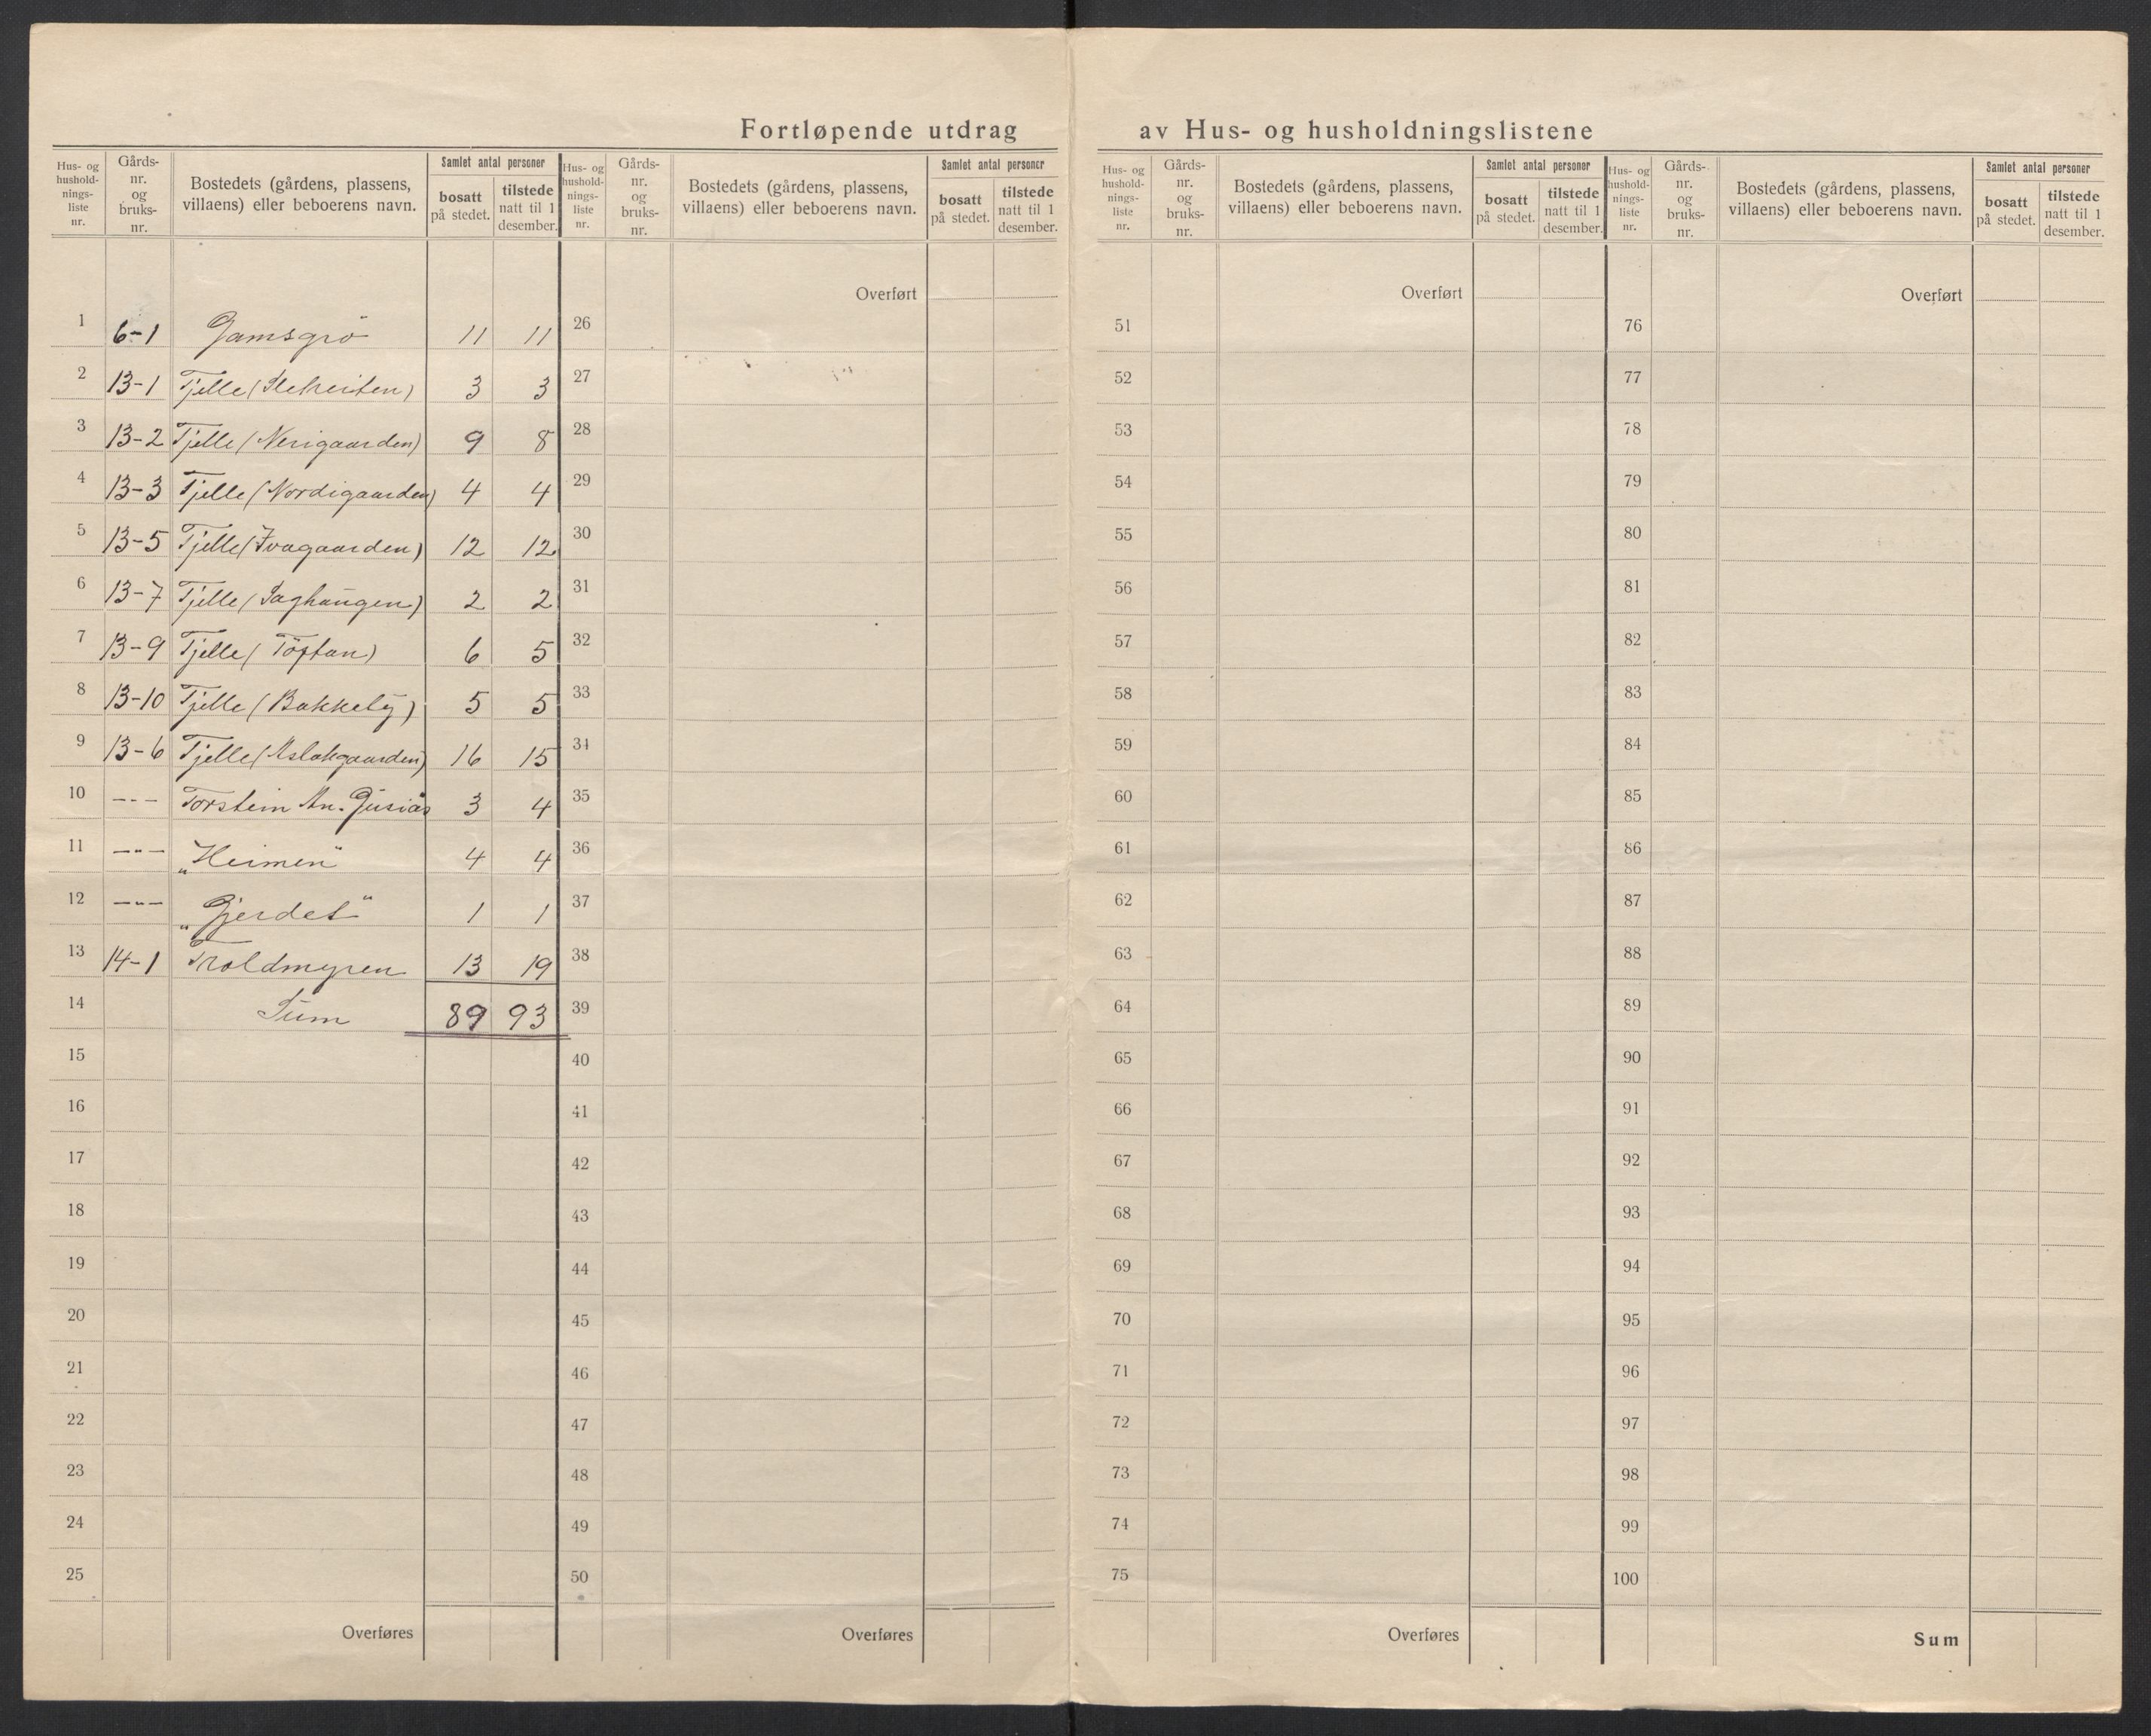 Fortløpende utdrag av Hus- og husholdningslistene
Hus- og husholdnings-liste nr. | Gårds-nr. og bruks-nr. | Bostedets (gårdens, plassens, villaens) eller beboerens navn. | Samlet antal personer | bosatt på stedet. | tilstede natt til 1 desember.
1 6-1 Gamsgrö 11 11
2 13-1 Tjelle 3 3
3 13-2 Tjelle (Nerigaarden) 9 8
4 13-3 Tjelle (Nordigaarden) 4 4
5 13-5 Tjelle (Ivagaarden) 12 12
6 13-7 Tjelle (Saghaugen) 2 2
7 13-9 Tjelle (Töftan) 6 5
8 13-10 Tjelle (Bakkely) 5 5
9 13-6 Tjelle (Aslakgaarden) 16 15
10 -"- Torstein An. Gusiås 3 4
11 -"- „Heimen" 4 4
12 -"- „Gjerdet" 1 1
13 14-1 Troldmyren 13 19
14 Sum 89 93
15
16
17
18
19
20
21
22
23
24
25
Overføres
Hus- og husholdnings-liste nr. | Gårds-nr. og bruks-nr. | Bostedets (gårdens, plassens, villaens) eller beboerens navn. | Samlet antal personer | bosatt på stedet. | tilstede natt til 1 desember.
Overført
26
27
28
29
30
31
32
33
34
35
36
37
38
39
40
41
42
43
44
45
46
47
48
49
50
Overføres
Hus- og husholdnings-liste nr. | Gårds-nr. og bruks-nr. | Bostedets (gårdens, plassens, villaens) eller beboerens navn. | Samlet antal personer | bosatt på stedet. | tilstede natt til 1 desember.
Overført
51
52
53
54
55
56
57
58
59
60
61
62
63
64
65
66
67
68
69
70
71
72
73
74
75
Overføres
Hus- og husholdnings-liste nr. | Gårds-nr. og bruks-nr. | Bostedets (gårdens, plassens, villaens) eller beboerens navn. | Samlet antal personer | bosatt på stedet. | tilstede natt til 1 desember.
Overført
76
77
78
79
80
81
82
83
84
85
86
87
88
89
90
91
92
93
94
95
96
97
98
99
100
Sum